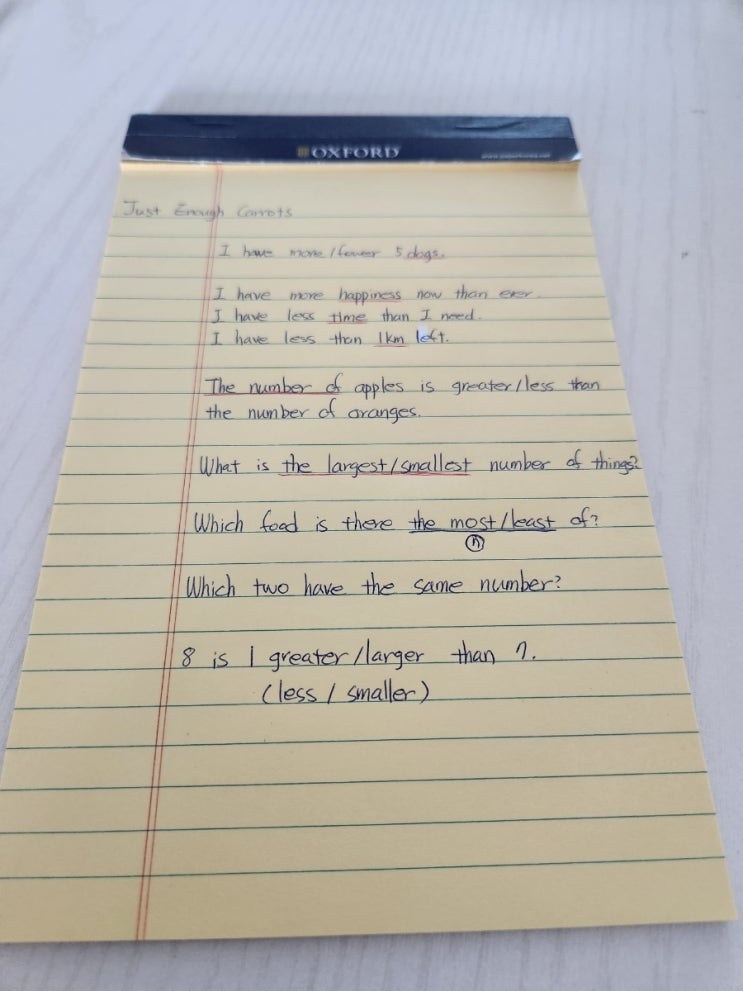 OXFORD
Just Enough Carrots
I have more/fewer 5 dogs.
I have more happiness now than ever.
I have less time than I need.
I have less than 1km left.
The number of apples is greater/less than
the number of oranges.
What is the largest/smallest number of things?
Which food is there the most/least of?
n
Which two have the same number?
8 is 1 greater/larger than 7.
(less / smaller)